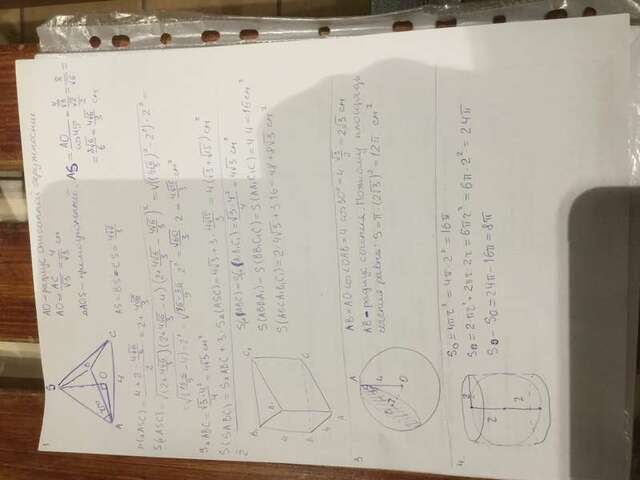 1
AO - радиус описанной окружности
AO = AC/√3 = 4/√3 см
△AOS - прямоугольный.
AS = AO/cos45° = (4/√3)/(√2/2) = 8/√6 =
= 8√6/6 = 4√6/3 см
AS = BS = CS = 4√6/3
S
A
B
C
O
4
p(△ASC) = (4 + 2 · 4√6/3)/2 = 2 + 4√6/3
S(△ASC) = √((2 + 4√6/3)(2 + 4√6/3 - 4)(2 + 4√6/3 - 4√6/3)²) = √((4√6/3)² - 2²) · 2² =
= 4√15/3 см²
S△ABC = √3 · 4²/4 = 4√3 см²
S(SABC) = S△ABC + 3 · S△(ASC) = 4√3 + 3 · 4√15/3 = 4(√3 + √15) см²
2
S△(ABC) = S△(A₁B₁C₁) = √3 · 4²/4 = 4√3 см²
S(ABBA₁) = S(BB₁C₁C) = S(AA₁C₁C) = 4 · 4 = 16 см²
S(ABCA₁B₁C₁) = 2 · 4√3 + 3 · 16 = 48 + 8√3 см²
B₁
C₁
A₁
4
B
C
4
A
3
AB = AO cos∠OAB = 4 cos30° = 4 · √3/2 = 2√3 см
AB - радиус сечения. Поэтому площадь
сечения равна: S = π · (2√3)² = 12π см²
A
B
4
O
4.
S○ = 4πr² = 4π · 2² = 16π
S = 2πr² + 2πr · 2r = 6πr² = 6π · 2² = 24π
S - S○ = 24π - 16π = 8π
2
2
2